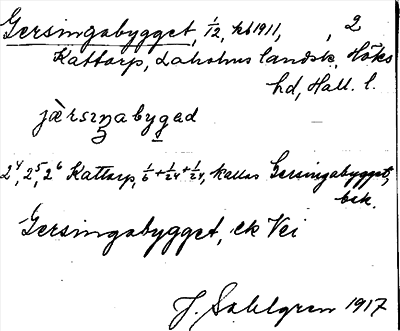 Gersingabygget, 1/12, hb 1911, , 2
Kattarp, Laholms landsk, Höks
hd, Hall. l.
jàrsıŋabygəd
2⁴, 2⁵, 2⁶ Kattarp, 1/6 + 1/24 + 1/24, kallas Gersingabygget,
bek.
Gersingabygget, ek Vei
J. Sahlgren 1917